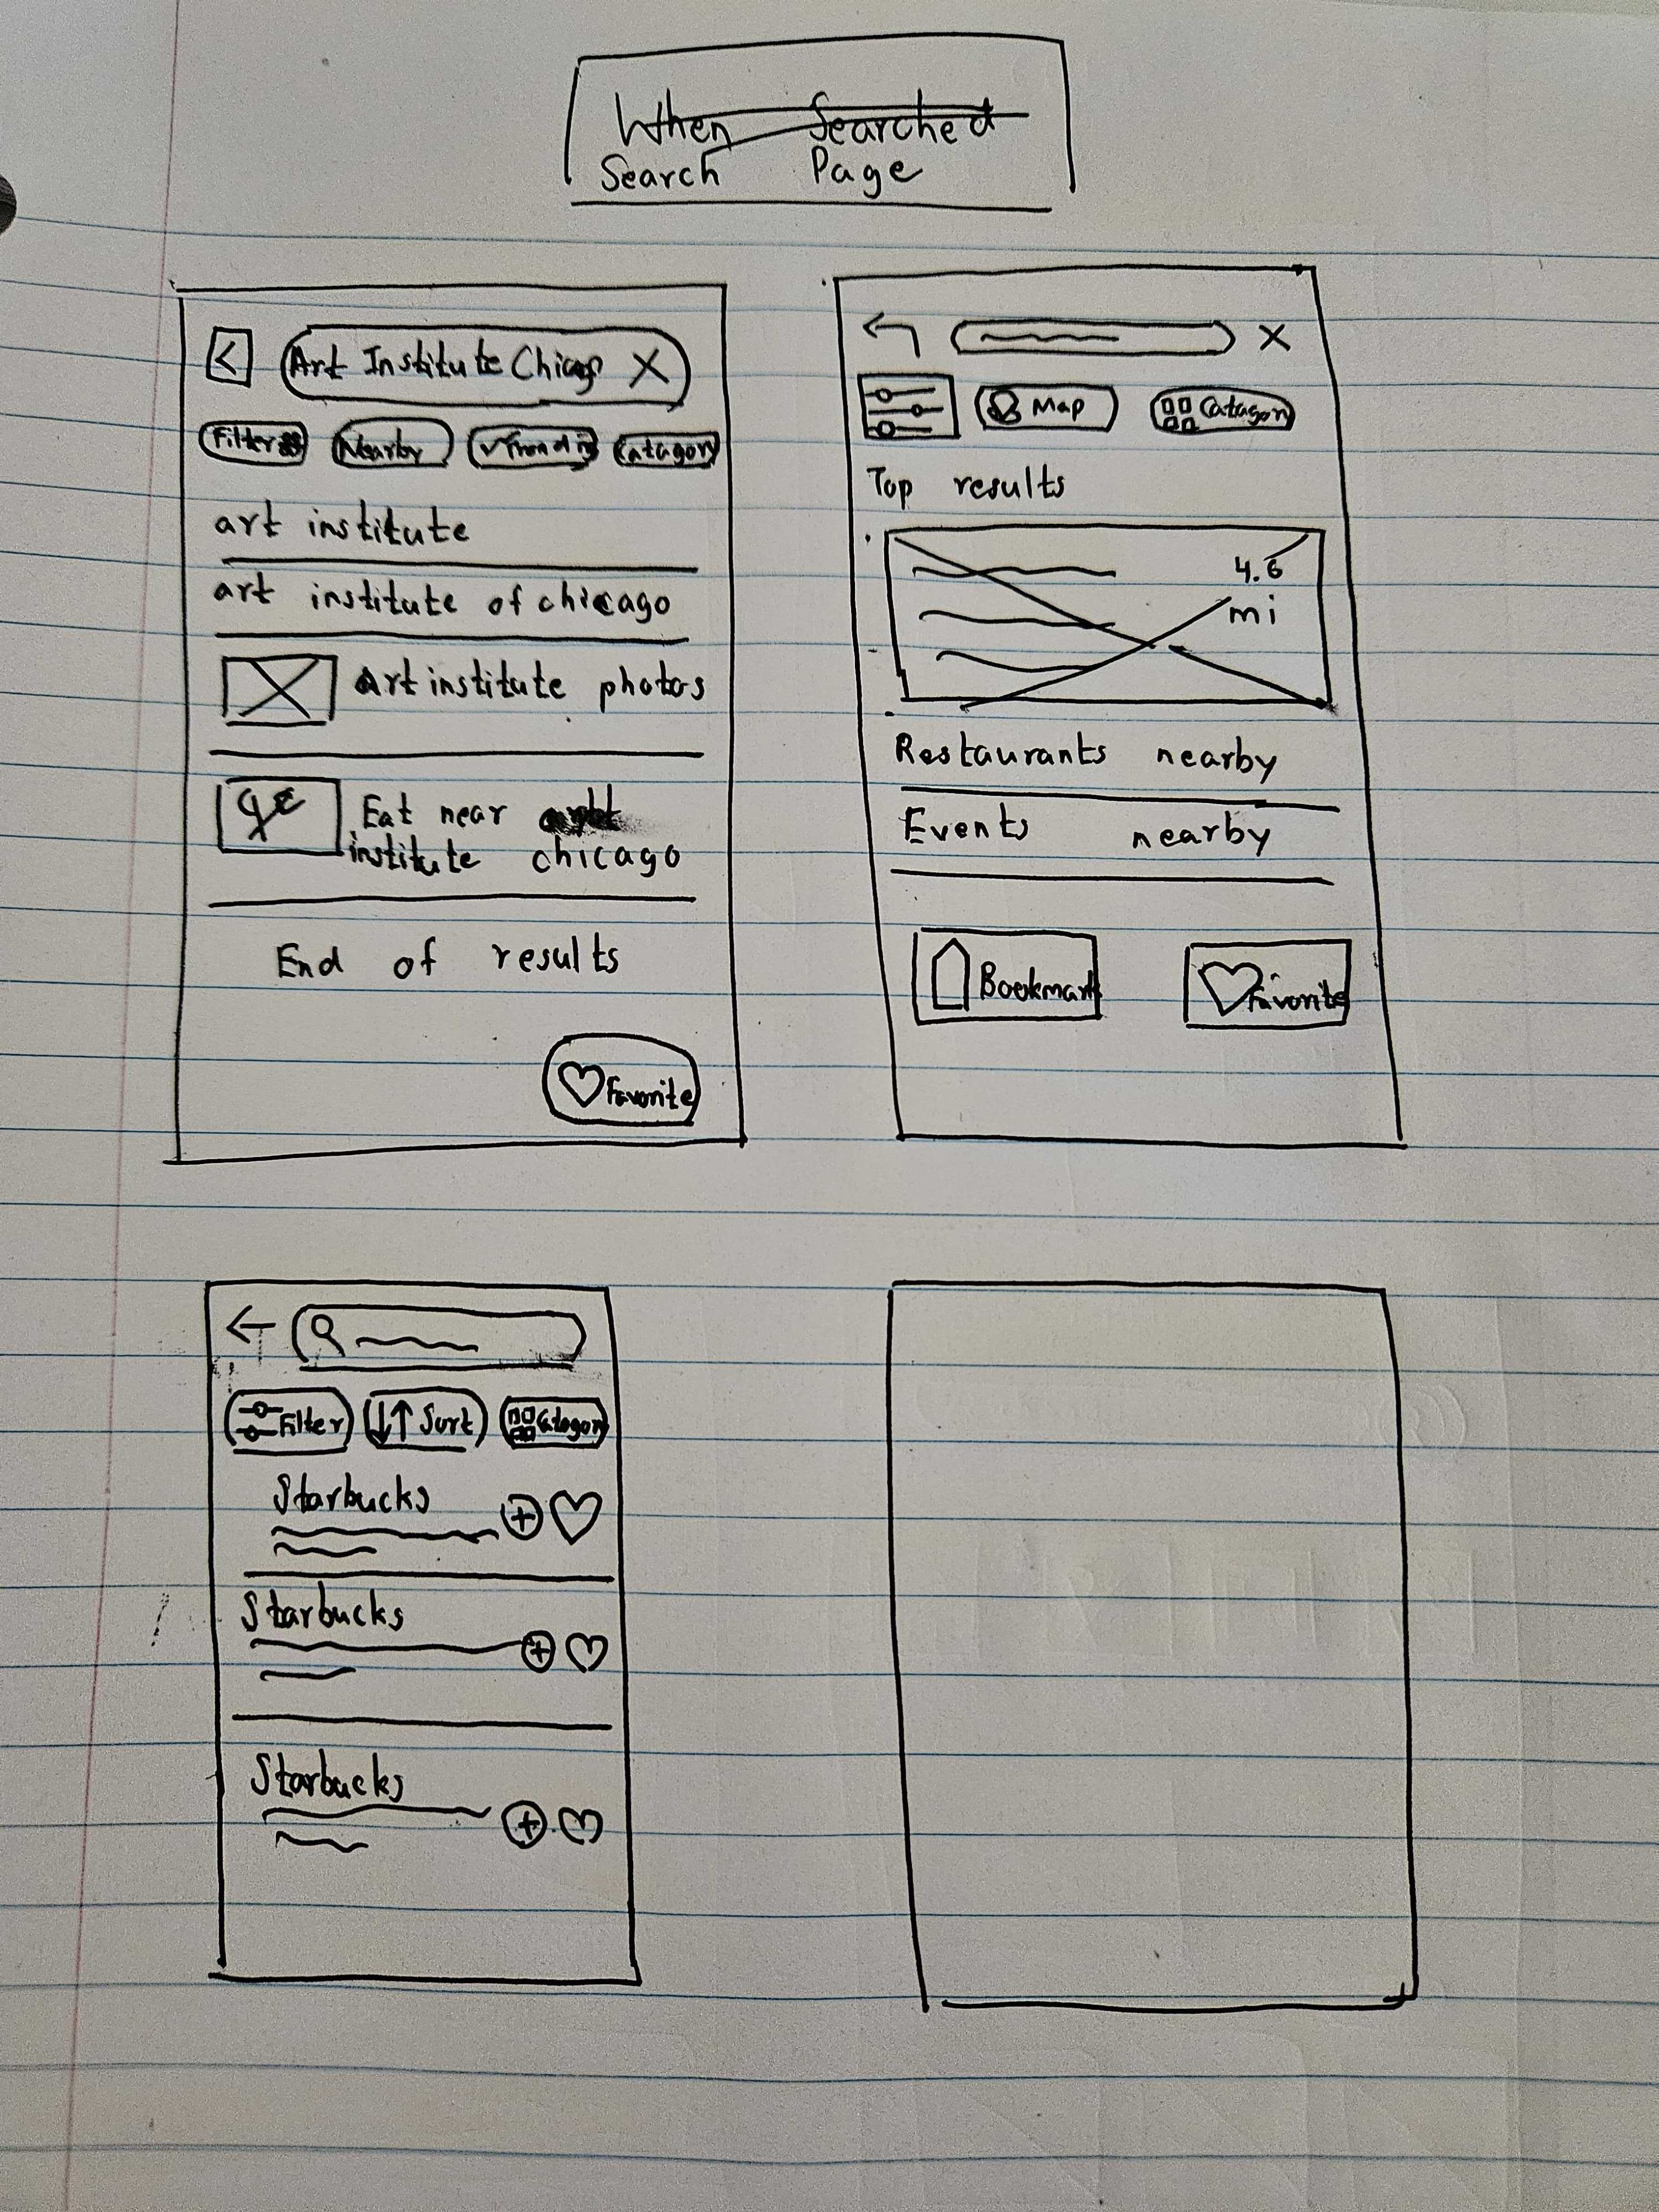 When Searched
Search Page
Art Institute Chicago X
Filter Nearby Catagory
art institute
art institute of chicago
Art institute photos
Eat near
institute chicago
End of results
Favorite
X
Map Catagory
Top results
4.6
mi
Restaurants nearby
Events nearby
Bookmark Favorite
Filter Sort Catagory
Starbucks
Starbucks
Starbucks